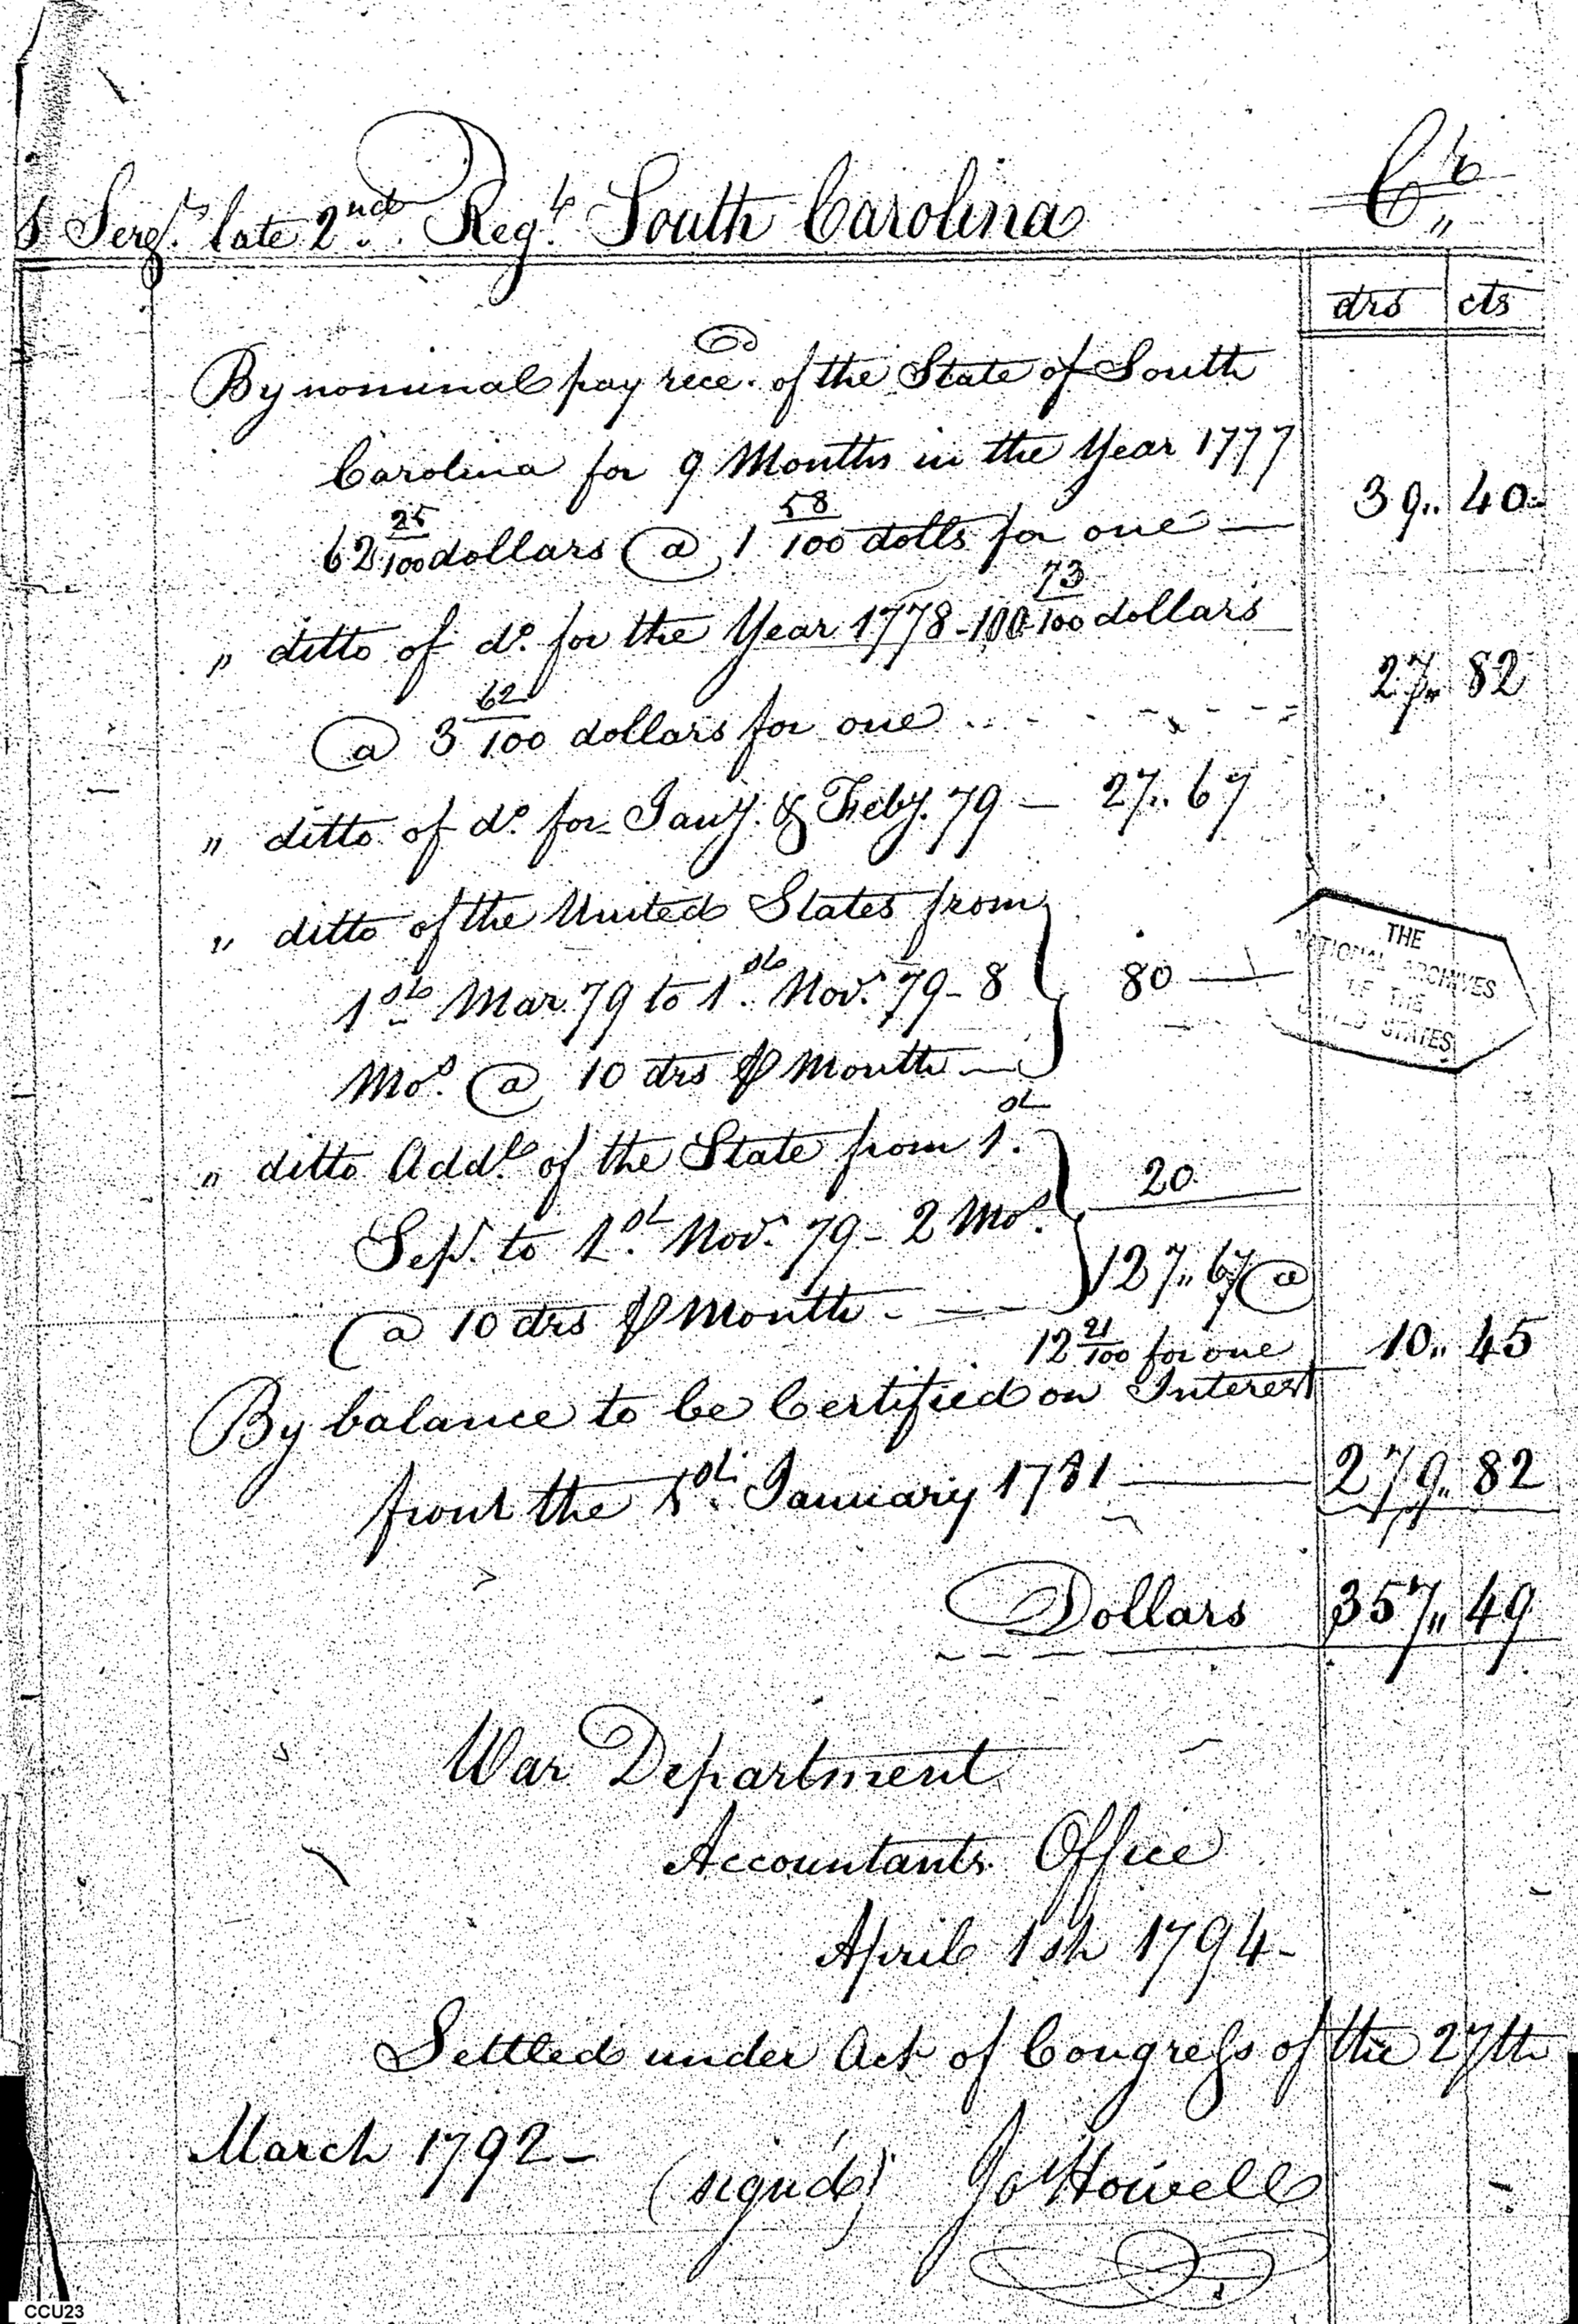 s Serjt. late 2nd. Regt. South Carolina Cr
drs cts
By nominal pay reced. of the State of South
Carolina for 9 Months in the Year 1777
62 25/100 dollars @ 1 58/100 dolls for one — 39.. 40
" ditto of do. for the Year 1778 - 100 73/100 dollars
@ 3 62/100 dollars for one .. - - - - - 27.. 82
" ditto of do. for Jany. & Feby. 79 — 27.. 67
" ditto of the United States from
1st Mar 79 to 1st. Nov. 79 - 8 80 —
Mos. @ 10 drs ⅌ Month —
" ditto Addl. of the State from 1st.
Sepr. to 1st. Nov. 79 - 2 Mos. 20
@ 10 drs ⅌ Month - — - 127.. 67 @
12 21/100 for one 10.. 45
By balance to be Certified on Interest
from the 1st. January 1781 — 279.. 82
Dollars 357.. 49
THE
NATIONAL ARCHIVES
OF THE
UNITED STATES
War Department
Accountants Office
April 1st 1794-
Settled under Act of Congress of the 27th
March 1792-
(signed) Jo Howell
CCU23